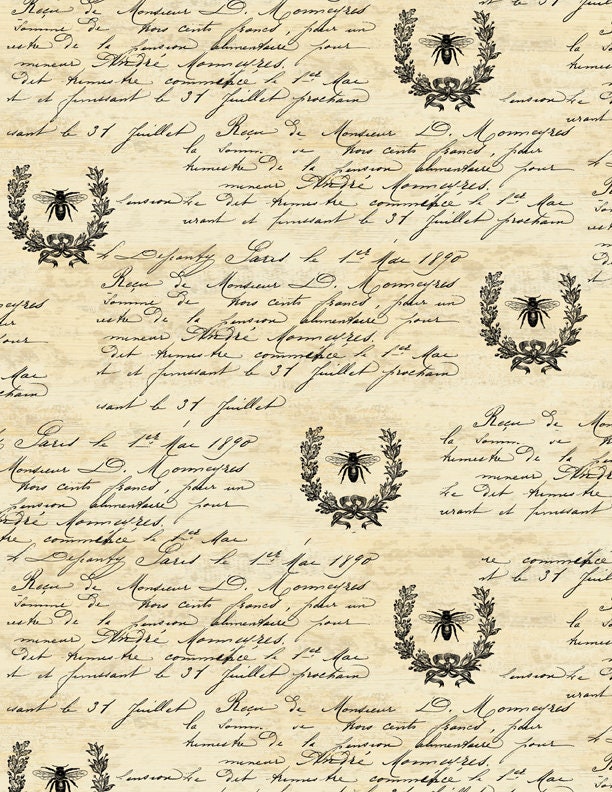 Reçu de Monsieur D. Monneyres
Somme de trois cents francs, pour
mestre de la pension alimentaire pour
mineur André Monneyres.
Dit trimestre commencé le 1er Mai
et finissant 31 Juillet prochain
pension
le Dit
sant le 31 Juillet
Reçu de Monsieur D. Monneyres
la Somme de trois cents francs, pour
trimestre de la pension alimentaire pour
mineur André Monneyres.
pension le Dit trimestre commencé le 1er Mai
urant et finissant 31 Juillet prochain
Paris le 1er Mai 1890
Reçu de Monsieur D. Monneyres
Somme de trois cents francs, pour un
mestre de la pension alimentaire pour
mineur André Monneyres.
Dit trimestre commencé le 1er Mai
et finissant 31 Juillet prochain
Mai
sant le 31 Juillet
Reçu de
la Somme de
trimestre de la
le Dit trimestre
urant et finissant
Paris le 1er Mai 1890
Monsieur D. Monneyres
trois cents francs, pour un
pension alimentaire pour
André Monneyres.
commencé le 1er Mai
Paris le 1er Mai 1890
Reçu de Monsieur D. Monneyres
Somme de trois cents francs, pour
mestre de la pension alimentaire pour
mineur André Monneyres.
Dit trimestre commencé le 1er Mai
et finissant 31 Juillet prochain
commencé
le 31
pension
le Dit
sant le 31 Juillet
Reçu de Monsieur D. Monneyres
la Somme de trois cents francs, pour
trimestre de la pension alimentaire pour
mineur André Monneyres.
pension le Dit trimestre commencé le 1er Mai
urant et finissant 31 Juillet prochain